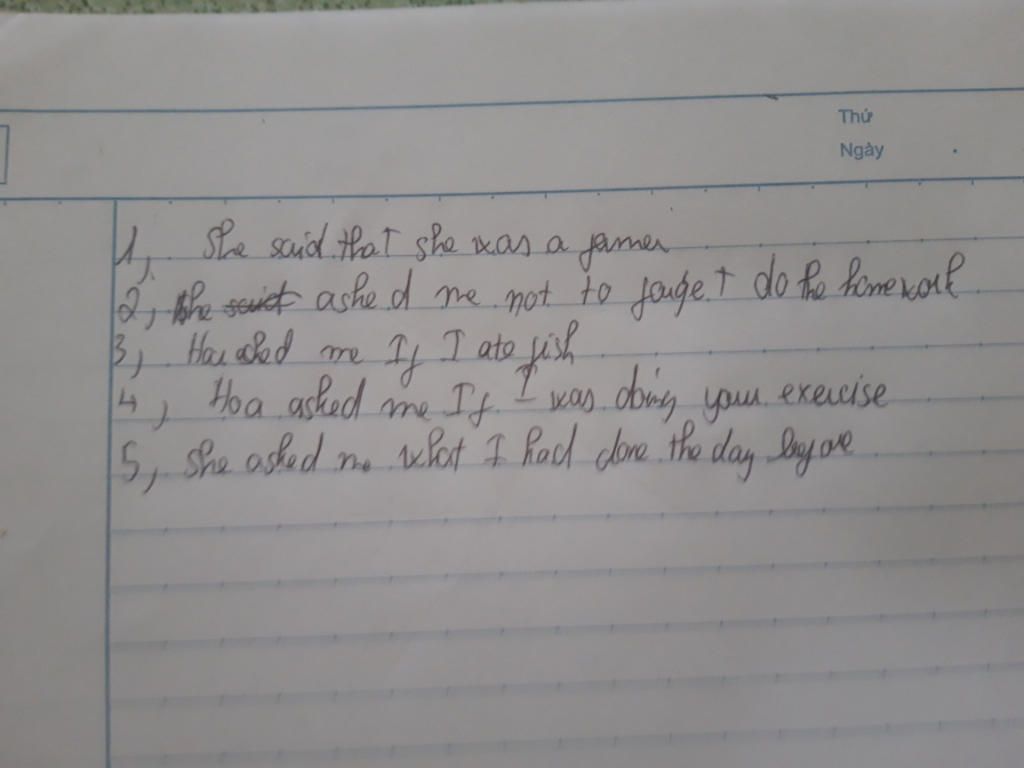 Thứ
Ngày
1, She said that she was a famer
2, She said asked me not to forget do the homework
3, Hoa asked me If I ate fish
4, Hoa asked me If I was doing your exercise
5, She asked me what I had done the day before